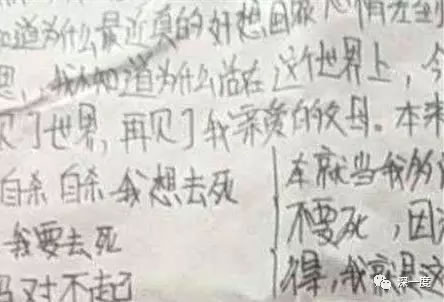 知道为什么最近真的好想回家 心情
思，我不知道为什么活在这个世界上，今
见了世界，再见了我亲爱的父母。本来
自杀 自杀 我想去死
我要去死
妈 对不起
本就当我
不要死，因
得，我就是这
深一度